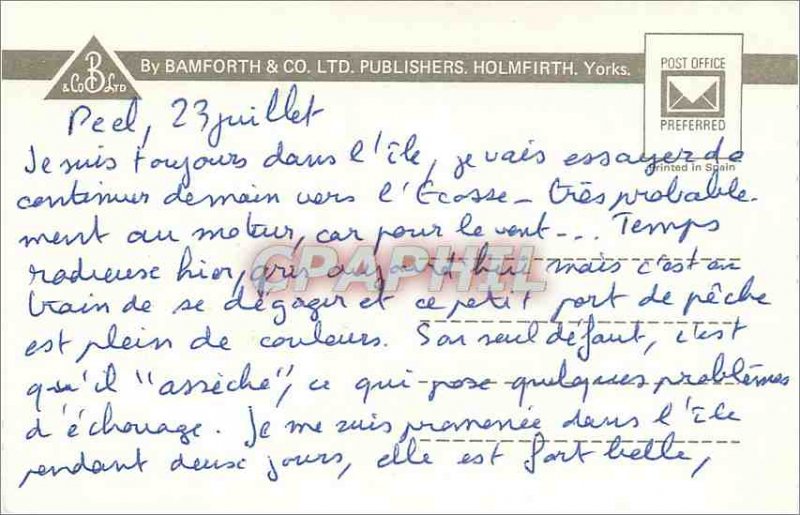 B
& Co LTD
By BAMFORTH & CO. LTD. PUBLISHERS. HOLMFIRTH. Yorks.
POST OFFICE
PREFERRED
Printed in Spain
Peel, 23 juillet
Je suis toujours dans l'île, je vais essayer de
continuer demain vers l'Ecosse - très probable-
ment au moteur, car pour le vent --.. Temps
radieuse hier, gris aujourd'hui mais c'est en
train de se dégager et ce petit port de pêche
est plein de couleurs. Son seul défaut, c'est
qu'il "assèche", ce qui pose quelques problèmes
d'échouage. Je me suis promenée dans l'île
pendant deux jours, elle est fort belle,
CPAPHIL